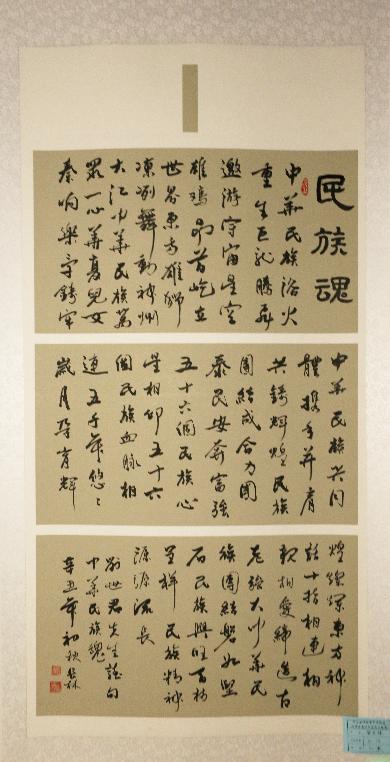 民族魂
中华民族浴火
重生巨龍騰飛
遨游宇宙星空
雄鸡昂首屹立
世界東方雄狮
凍冽舞動神州
大江中華民族萬
眾一心華夏兒女
奏响樂章鑄牢
中華民族共同
體携手并肩
共鑄輝煌民族
團結成合力國
泰民安奔富強
五十六個民族心
星相印五十六
個民族血脉相
連五千年悠々
歲月孕育輝
煌燦爛東方神
話十指相連相
親相愛締造古
老强大中華民
族團結磐如堅
石民族興旺百树
呈祥民族精神
源源流長
劉世君先生詩句
中華民族魂
辛丑年初秋